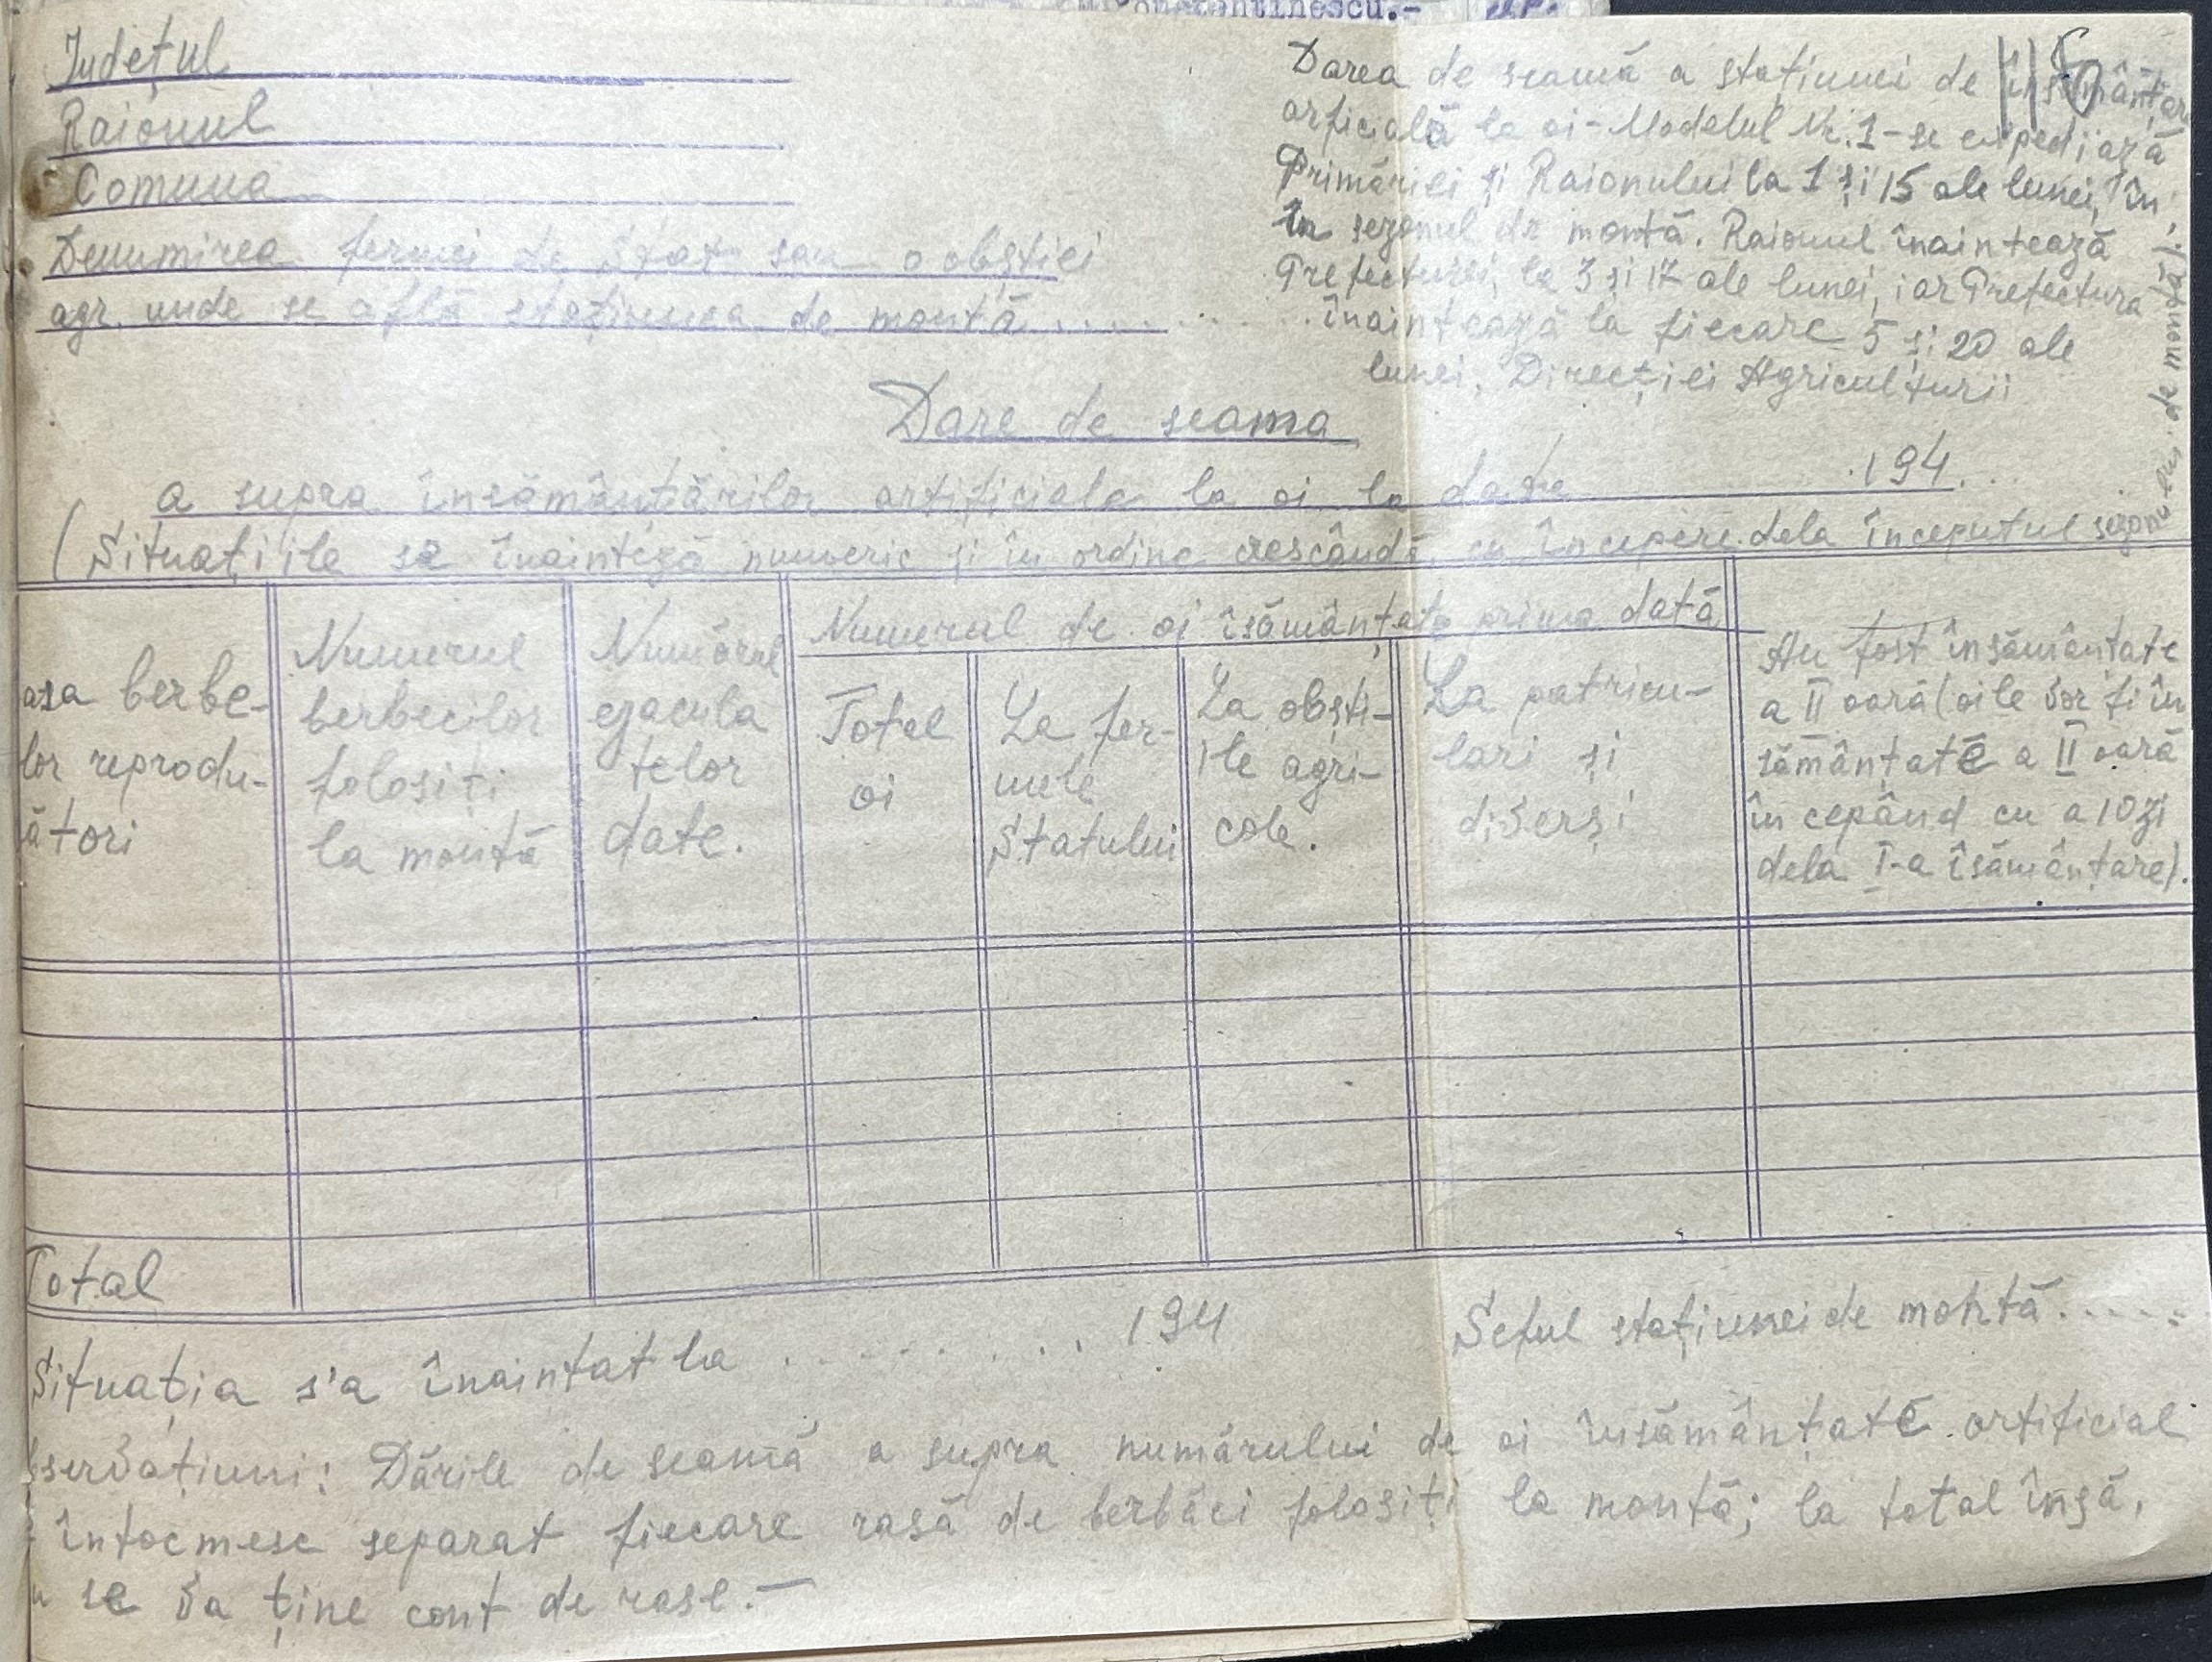 onstantinescu.-
Județul
Raionul
Comuna
Denumirea fermei de stat sau o obștiei
agr. unde se află stațiunea de montă.....
Darea de seamă a stațiunei de însămânțare
arficială la oi - Modelul Nr. 1 - se expediiază
Primăriei și Raionului la 1 și 15 ale lunei, în
în sezonul de montă. Raionul înaintează
Prefecturei, la 3 și 17 ale lunei, iar Prefectura
înaintează la fiecare 5 și 20 ale
lunei, Direcției Agriculturii
Dare de seama
a supra însămânțărilor artificiale la oi la data 194...
(Situațiile se înainteză numeric și în ordine crescândă, cu începere dela începutul sezonului de montă).
asa berbe-
lor reprodu-
ători
Numerul
berbecilor
folosiți
la montă
Numărul
ejacula
telor
date.
Numerul de oi îsămânțate prima dată
Total
oi
La fer-
mele
Statului
La obști-
ile agri-
cole.
La patricu-
lari și
diverși
Au fost însământate
a II oară (oile vor fi în
sămânțate a II oară
în cepând cu a 10 zi
dela I-a îsămânțare).
Total
Situația s'a înaintat la ......... 194
Șeful stațiunei de montă.....
bservațiuni: Dările de seamă a supra numărului de oi însămânțate artificial
întocmesc separat fiecare rasă de berbăci folosiți la montă; la total însă,
u se va ține cont de rase.-